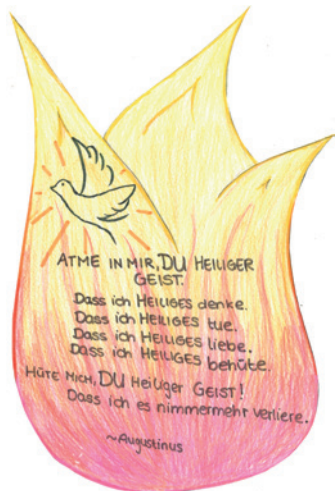 ATME IN MIR, DU HEILIGER
GEIST.
Dass ich HEILIGES denke.
Dass ich HEILIGES tue.
Dass ich HEILIGES liebe.
Dass ich HEILIGES behüte.
HÜTE MICH, DU Heiliger GEIST!
Dass ich es nimmermehr verliere.
~Augustinus